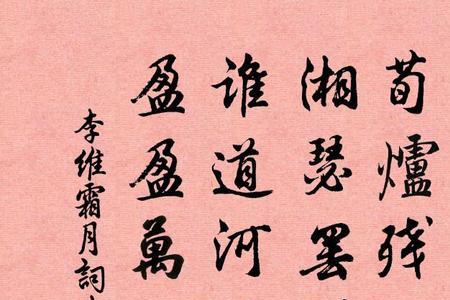 荀爐残
湘瑟罢
谁道河
盈盈萬
李维霜月詞